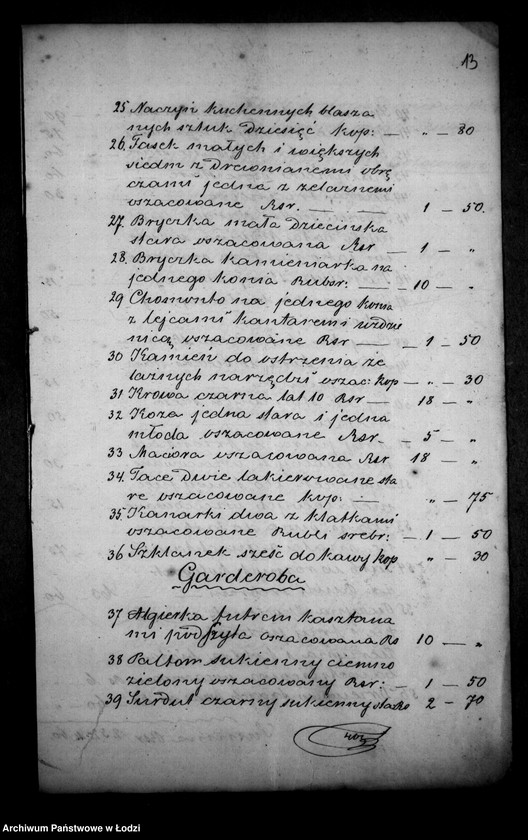 13
25 Naczyń kuchennych blasza
nych sztuk dziesięć kop: — „ — 80
26. Fasek małych i większych
siedm z drewnianemi obrę
czami jedna z żelaznemi
oszacowane Rsr. — — 1 — 50.
27. Bryczka mała dziecinska
stara oszacowana Rsr — 1 — „
28. Bryczka kamieniarka na
jednego konia Rubsr: — 10 — „
29 Chomonto na jednego konia
z lejcami kantarem i uzdze
nicą oszacowane Rsr — 1 — 50
30 Kamień do ostrzenia że
laznych narzędzi oszac: kop — „ — 30
31 Krowa czarna lat 10 Rsr — 18 — „
32 Koza jedna stara i jedna
młoda oszacowane Rsr. — 5 — „
33 Maciora oszacowana Rsr 18 — „
34. Tace dwie lakierowane sta
re oszacowane kop: — „ — 75
35. Kanarki dwa z klatkami
oszacowane Rubli srebr: — 1 — 50
36 Szklanek sześć do kawy kop „ — 30
Garderoba
37 Algierka futrem kasztana
mi podszyta oszacowana Rs 10 — „
38 Paltom sukienny ciemno
zielony oszacowany Rsr: — 1 — 50
39 Surdut czarny sukienny sta Rs 2 — 70
Archiwum Państwowe w Łodzi